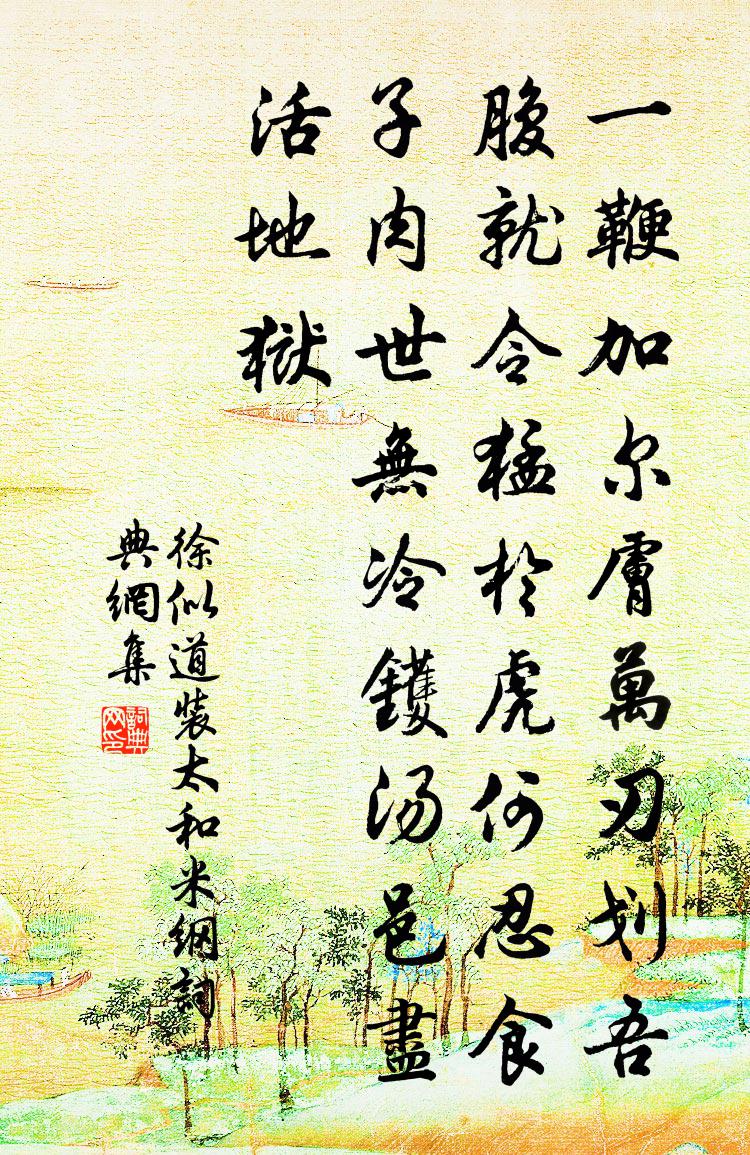 一鞭加尔膚萬刃划吾
腹就令猛於虎何忍食
子肉世無冷鑊汤邑盡
活地獄
徐似道裝太和米綱詞
典網集
詞典
网印